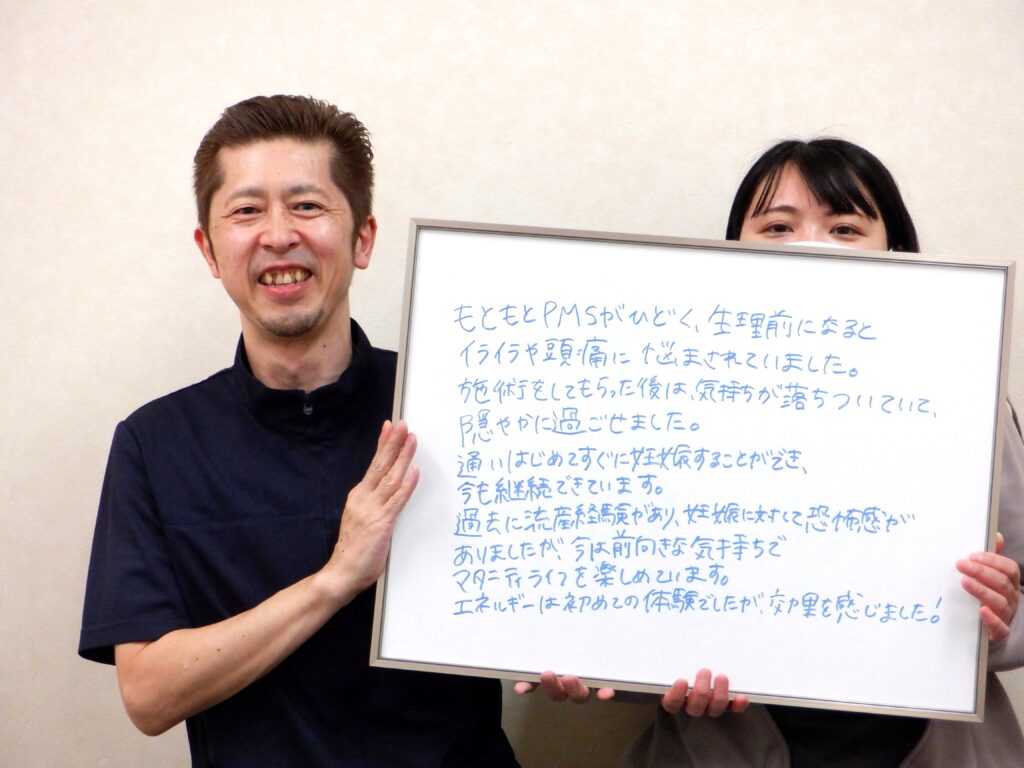 もともとPMSがひどく、生理前になると
イライラや頭痛に悩まされていました。
施術をしてもらった後は、気持ちが落ちついていて、
隠やかに過ごせました。
通いはじめてすぐに妊娠することができ、
今も継続できています。
過去に流産経験があり、妊娠に対して恐怖感が
ありましたが、今は前向きな気持ちで
マタニティライフを楽しめています。
エネルギーは初めての体験でしたが、効果を感じました!